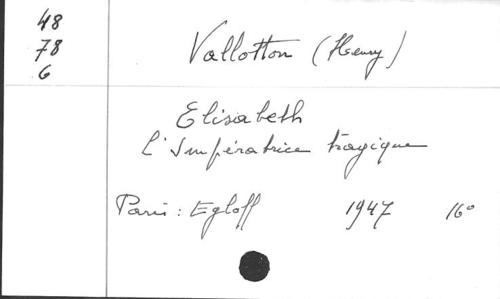 48
78
6
Vallotton (Henry)
Elisabeth
L'Impératrice tragique
Paris : Egloff 1947 16°